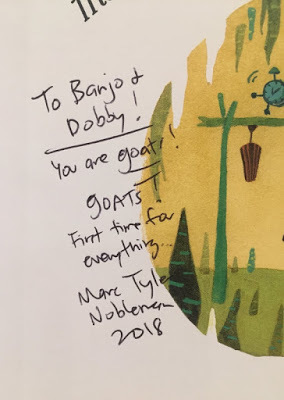 To Banjo &
Dobby!
You are goats!
GOATS!
First time for
everything...
Marc Tyler
Nobleman
2018